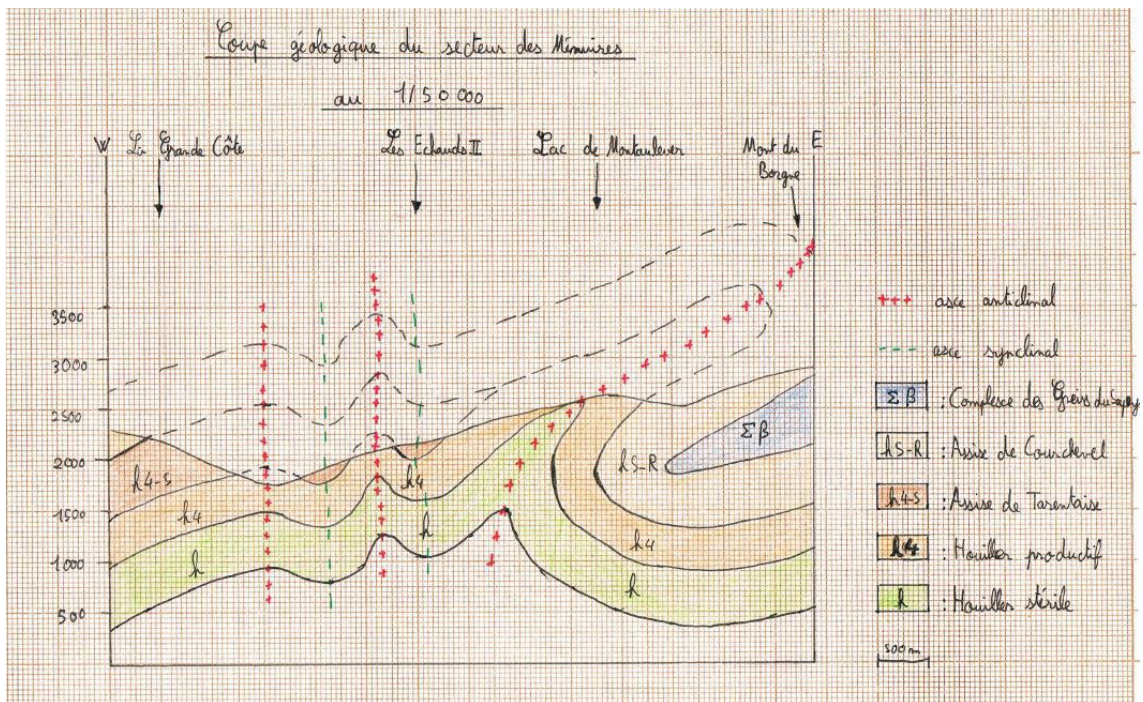 Coupe géologique du secteur des Ménuires
au 1/50 000
W La Grande Côte
Les Echauds II
Lac de Montaulever
Mont du
Borgne
E
3500
3000
2500
2000
1500
1000
500
h4-S
h4
h
h4
h
h5-R
Σβ
h4
h
+++ axe anticlinal
--- axe synclinal
Σβ : Complexe des Gneiss du Sapey
h5-R : Assise de Courchevel
h4-S : Assise de Tarentaise
h4 : Houiller productif
h : Houiller stérile
500 m